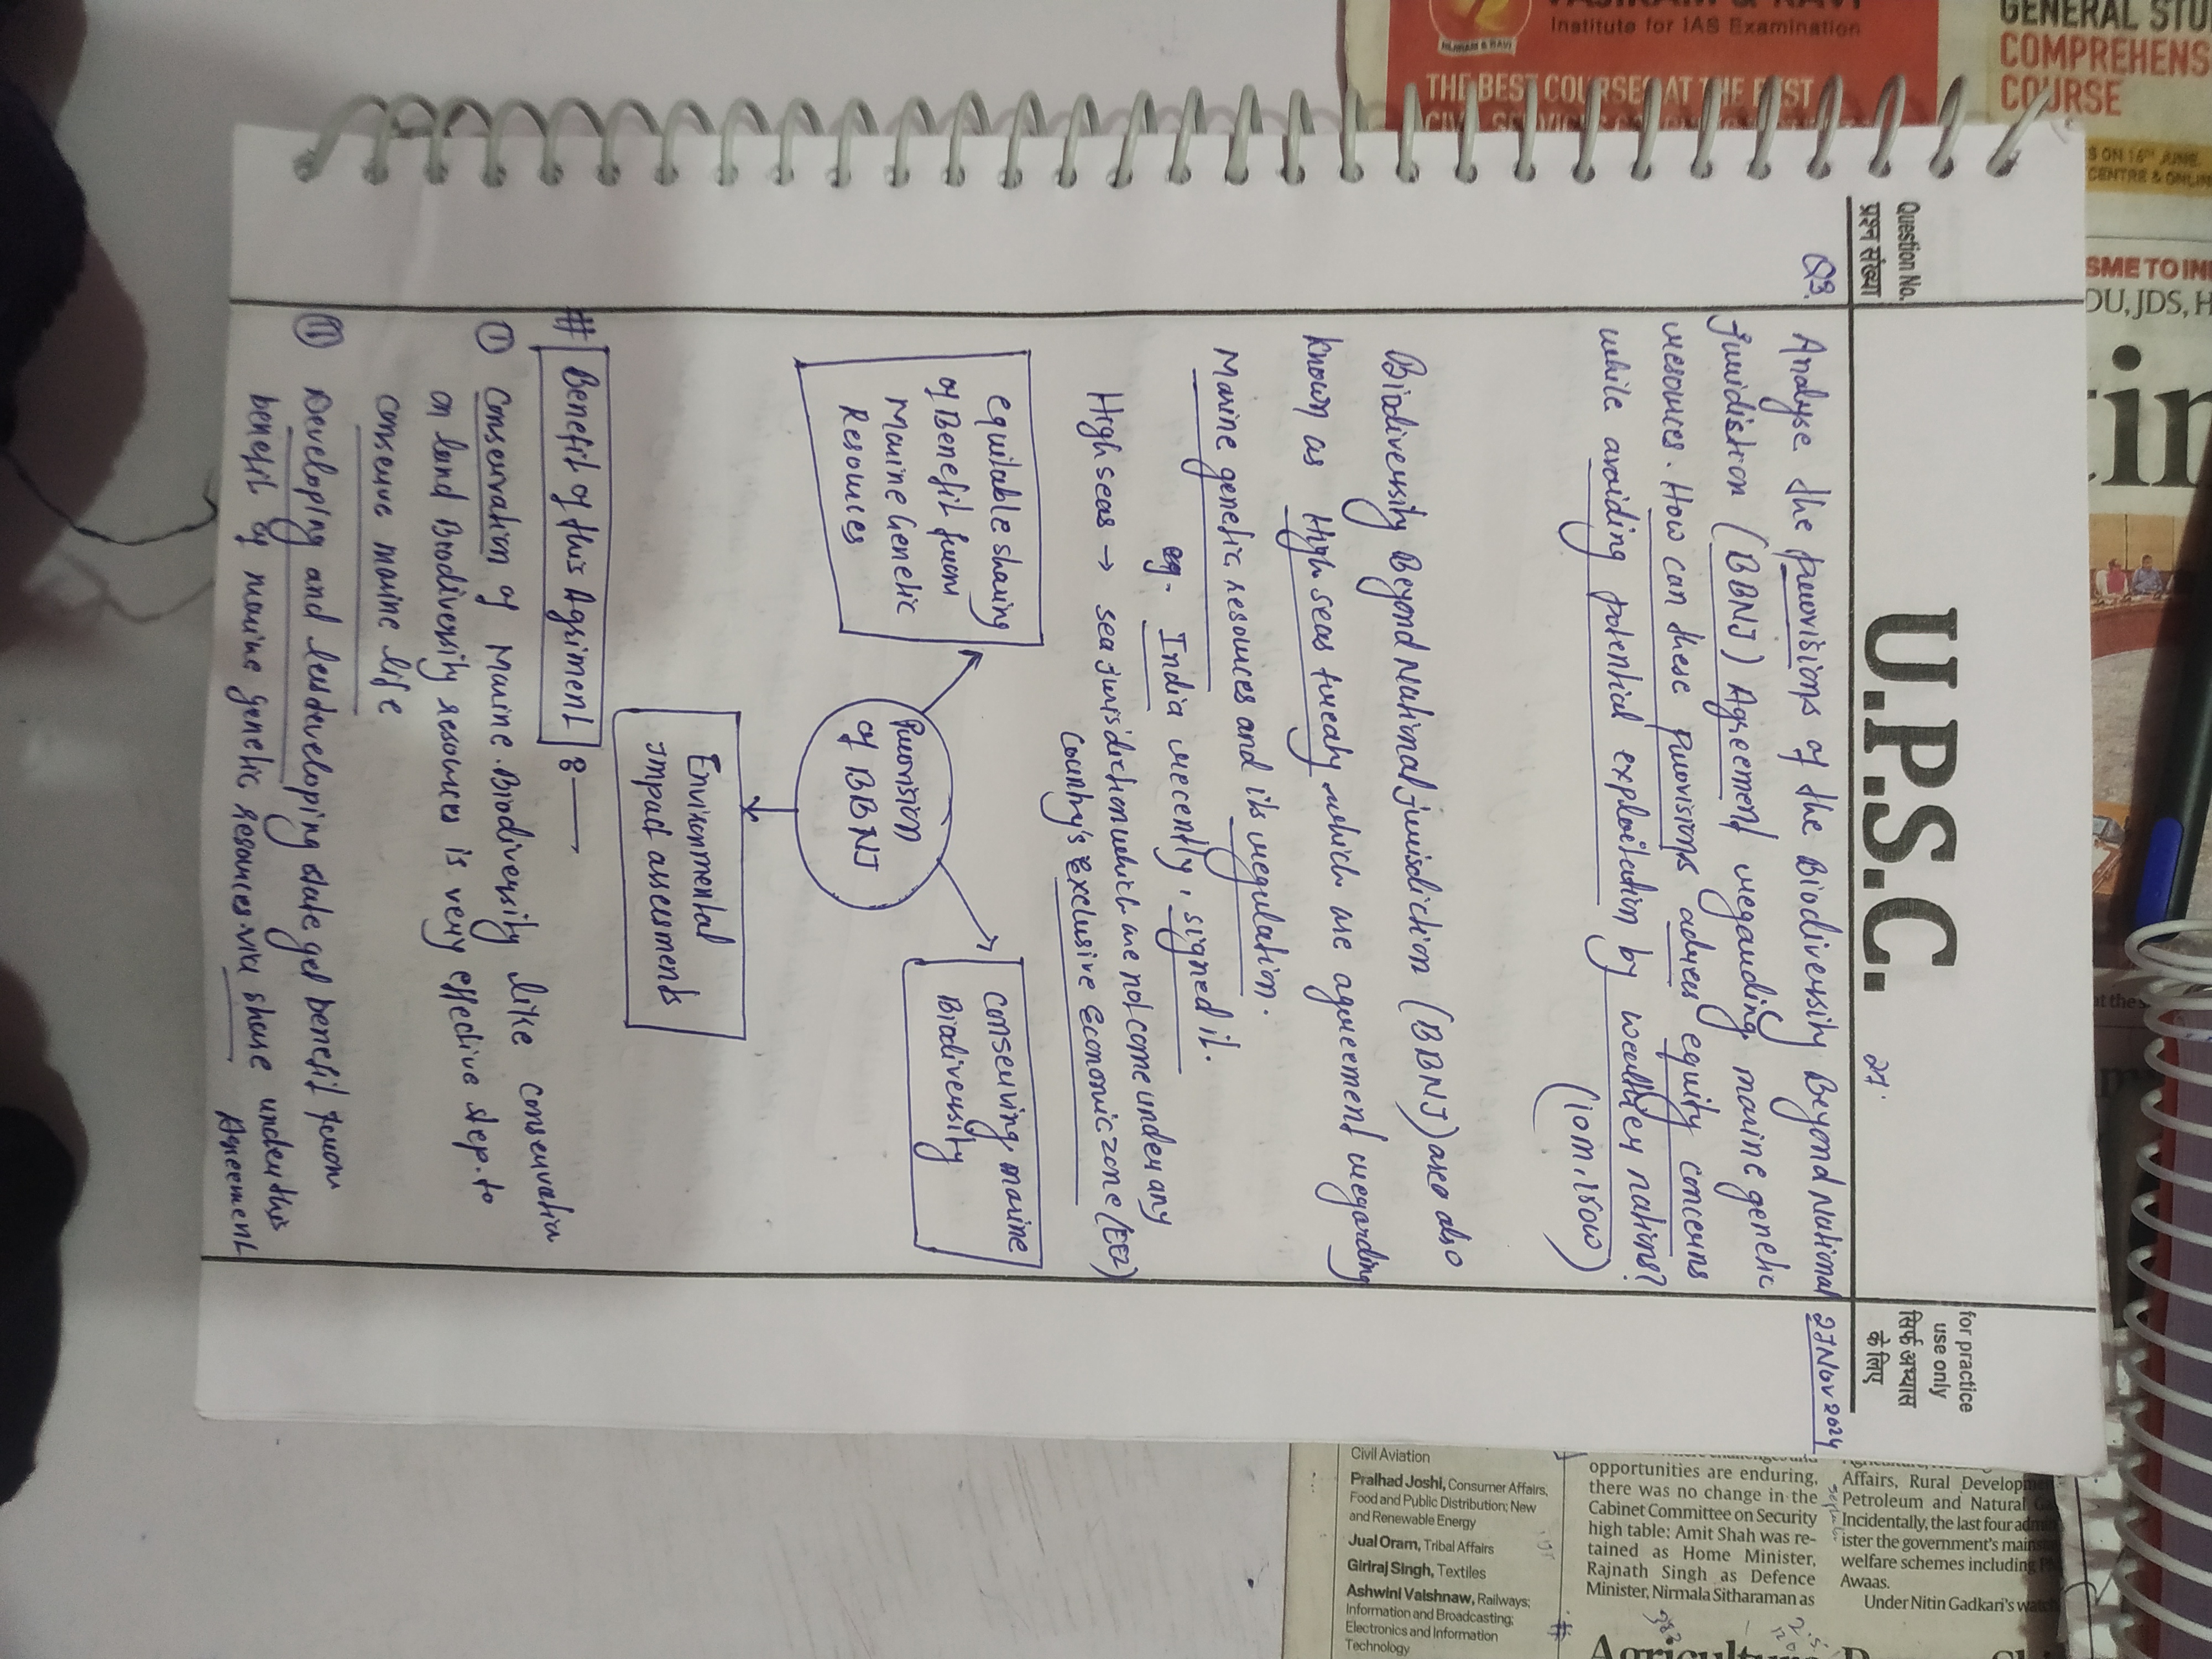 Question No.
प्रश्न संख्या
U.P.S.C.
for practice
use only
सिर्फ अभ्यास
के लिए
27 Nov 2024
Q3.
Analyse the provisions of the Biodiversity Beyond National
Jurisdistion (BBNJ) Agreement regarding marine genetic
resources. How can these provisions adres equity concerns
while avoiding potential exploitation by wealthey nations?
(10m, 150w)
Biodiversity Beyond National jurisdiction (BBNJ) also
known as High seas treaty which are agreement regarding
Marine genetic resources and its regulation.
eg. India recently, signed it.
High seas → sea jurisdiction which are not come under any
country's Exclusive Economic zone (EEZ)
equitable sharing
of Benefit from
Marine Genetic
Resources
Provision
of BBNJ
Conserving marine
Biodiversity
Environmental
impact assesments
# Benefit of this Agriment 8—
① Conservation of Marine Biodiversity like conservation
on land Biodiversity resources is very effective step to
conserve marine life
② Developing and lesdeveloping state get benefit from
benefit of marine genetic resources via share under this
Agreement
Institute for IAS Examination
THE BEST COURSES AT THE BEST
GENERAL STU
COMPREHENS
COURSE
S ON 16TH JUNE,
CENTRE & ONLIN
SME TO IN
DU, JDS, H
tin
Civil Aviation
Pralhad Joshi, Consumer Affairs,
Food and Public Distribution; New
and Renewable Energy
Jual Oram, Tribal Affairs
Giriraj Singh, Textiles
Ashwini Vaishnaw, Railways;
Information and Broadcasting;
Electronics and Information
Technology
opportunities are enduring,
there was no change in the
Cabinet Committee on Security
high table: Amit Shah was re-
tained as Home Minister,
Rajnath Singh as Defence
Minister, Nirmala Sitharaman as
Affairs, Rural Developm
Petroleum and Natural
Incidentally, the last four
ister the government's
welfare schemes including
Awaas.
Under Nitin Gadkari's